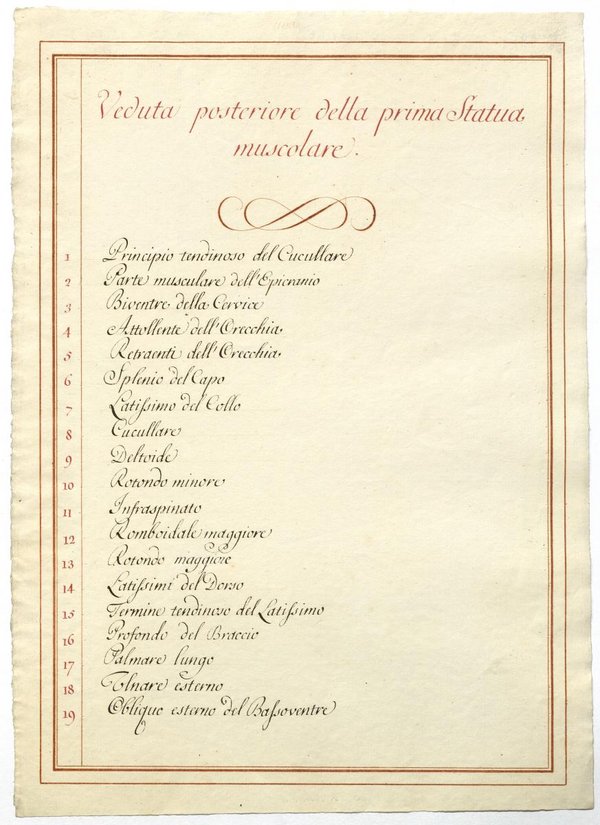 Veduta posteriore della prima Statua
muscolare.
1 Principio tendinoso del Cucullare
2 Parte musculare dell'Epicranio
3 Biventre della Cervice
4 Attollente dell'Orecchia
5 Retraenti dell'Orecchia
6 Splenio del Capo
7 Latissimo del Collo
8 Cucullare
9 Deltoide
10 Rotondo minore
11 Infraspinato
12 Romboidale maggiore
13 Rotondo maggiore
14 Latissimi del Dorso
15 Termine tendinoso del Latissimo
16 Profondo del Braccio
17 Palmare lungo
18 Ulnare esterno
19 Obliquo esterno del Bassoventre